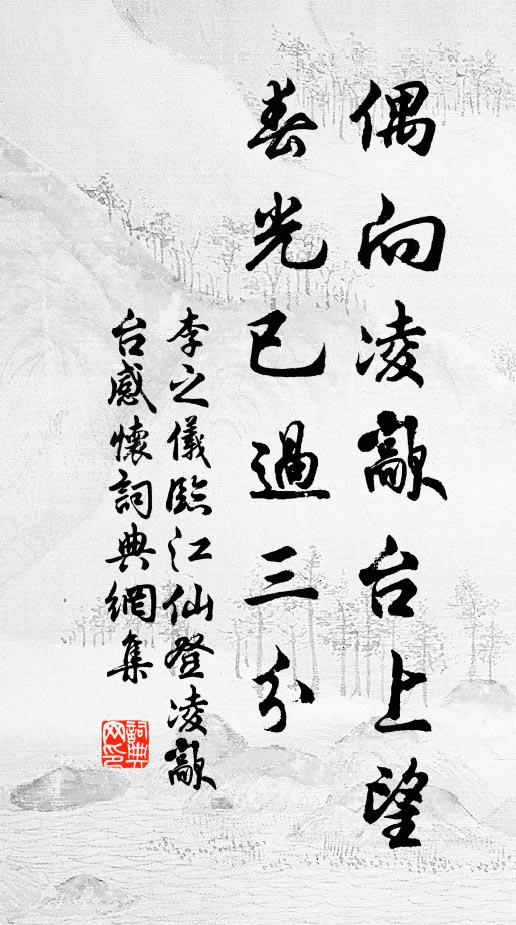 偶向凌歊台上望
春光已過三分
李之儀臨江仙登凌歊
台感懷詞典網集
詞典
网印